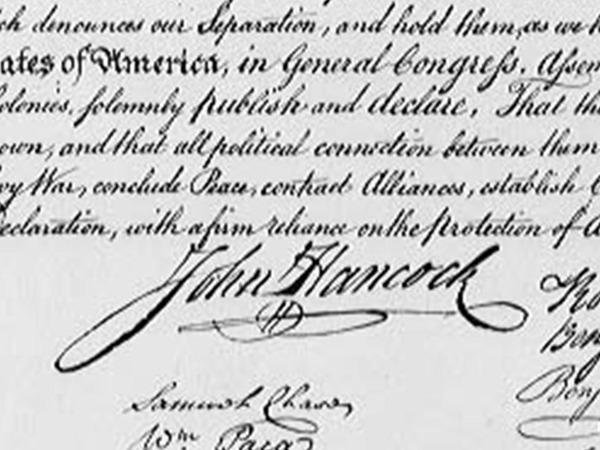 ch denounces our Separation, and hold them, as we h
ates of America, in General Congress, Assem
olonies, solemnly publish and declare, That th
own, and that all political connection between them
evy War, conclude Peace, contract Alliances, establish C
eclaration, with a firm reliance on the protection of d
John Hancock
H
Ro
Benj
Samuel Chase
Benj
Wm Paca